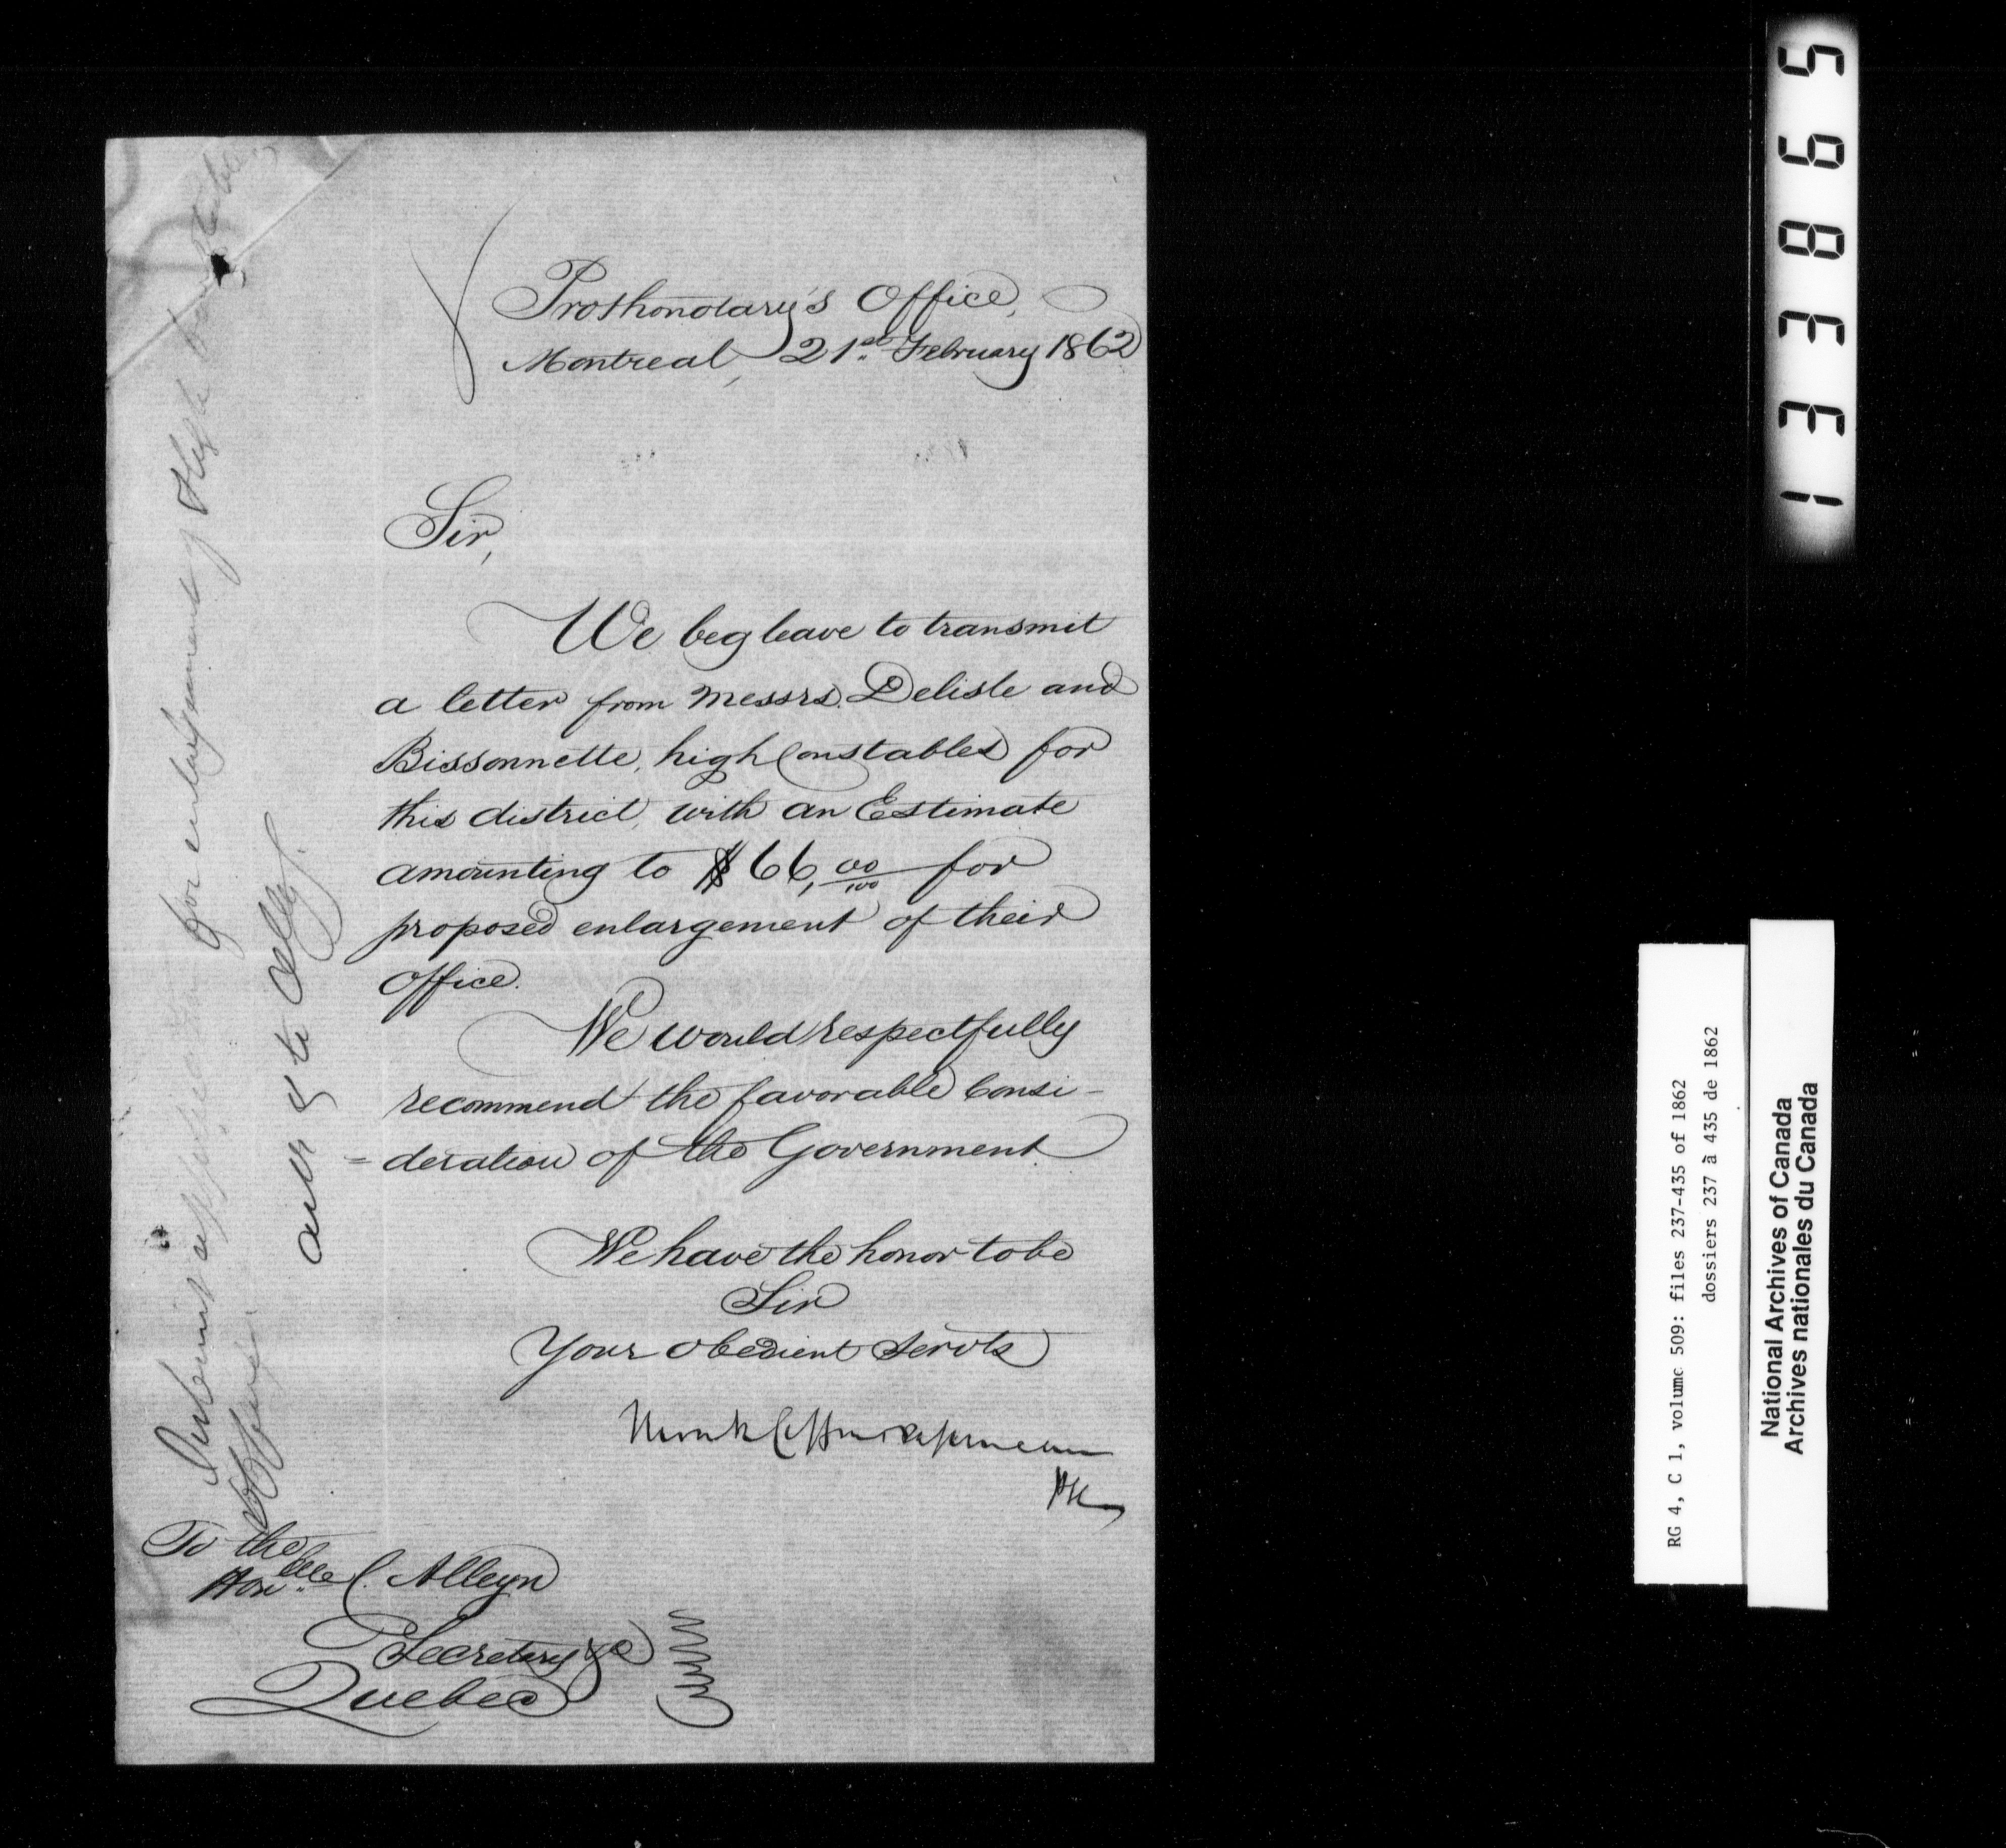 Prothonotary's Office,
Montreal, 21st February 1862
Sir,
We beg leave to transmit
a letter from Messrs. Delisle and
Bissonnette, high Constables for
this district, with an Estimate
amounting to $66,00/100 for
proposed enlargement of their
Office.
We would respectfully
recommend the favorable Consi-
=deration of the Government
We have the honor to be
Sir
Your obedient Servts
Monk Coffin & Papineau
To the
Honble C. Alleyn
Secretary &c
Quebec
for enlargement of High Constable
Office
& to
133865
RG 4, C 1, volume 509: files 237-435 of 1862
dossiers 237 à 435 de 1862
National Archives of Canada
Archives nationales du Canada